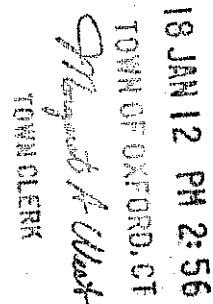 18 JAN 12 PM 2:56
TOWN OF OXFORD, CT
Margaret A West
TOWN CLERK